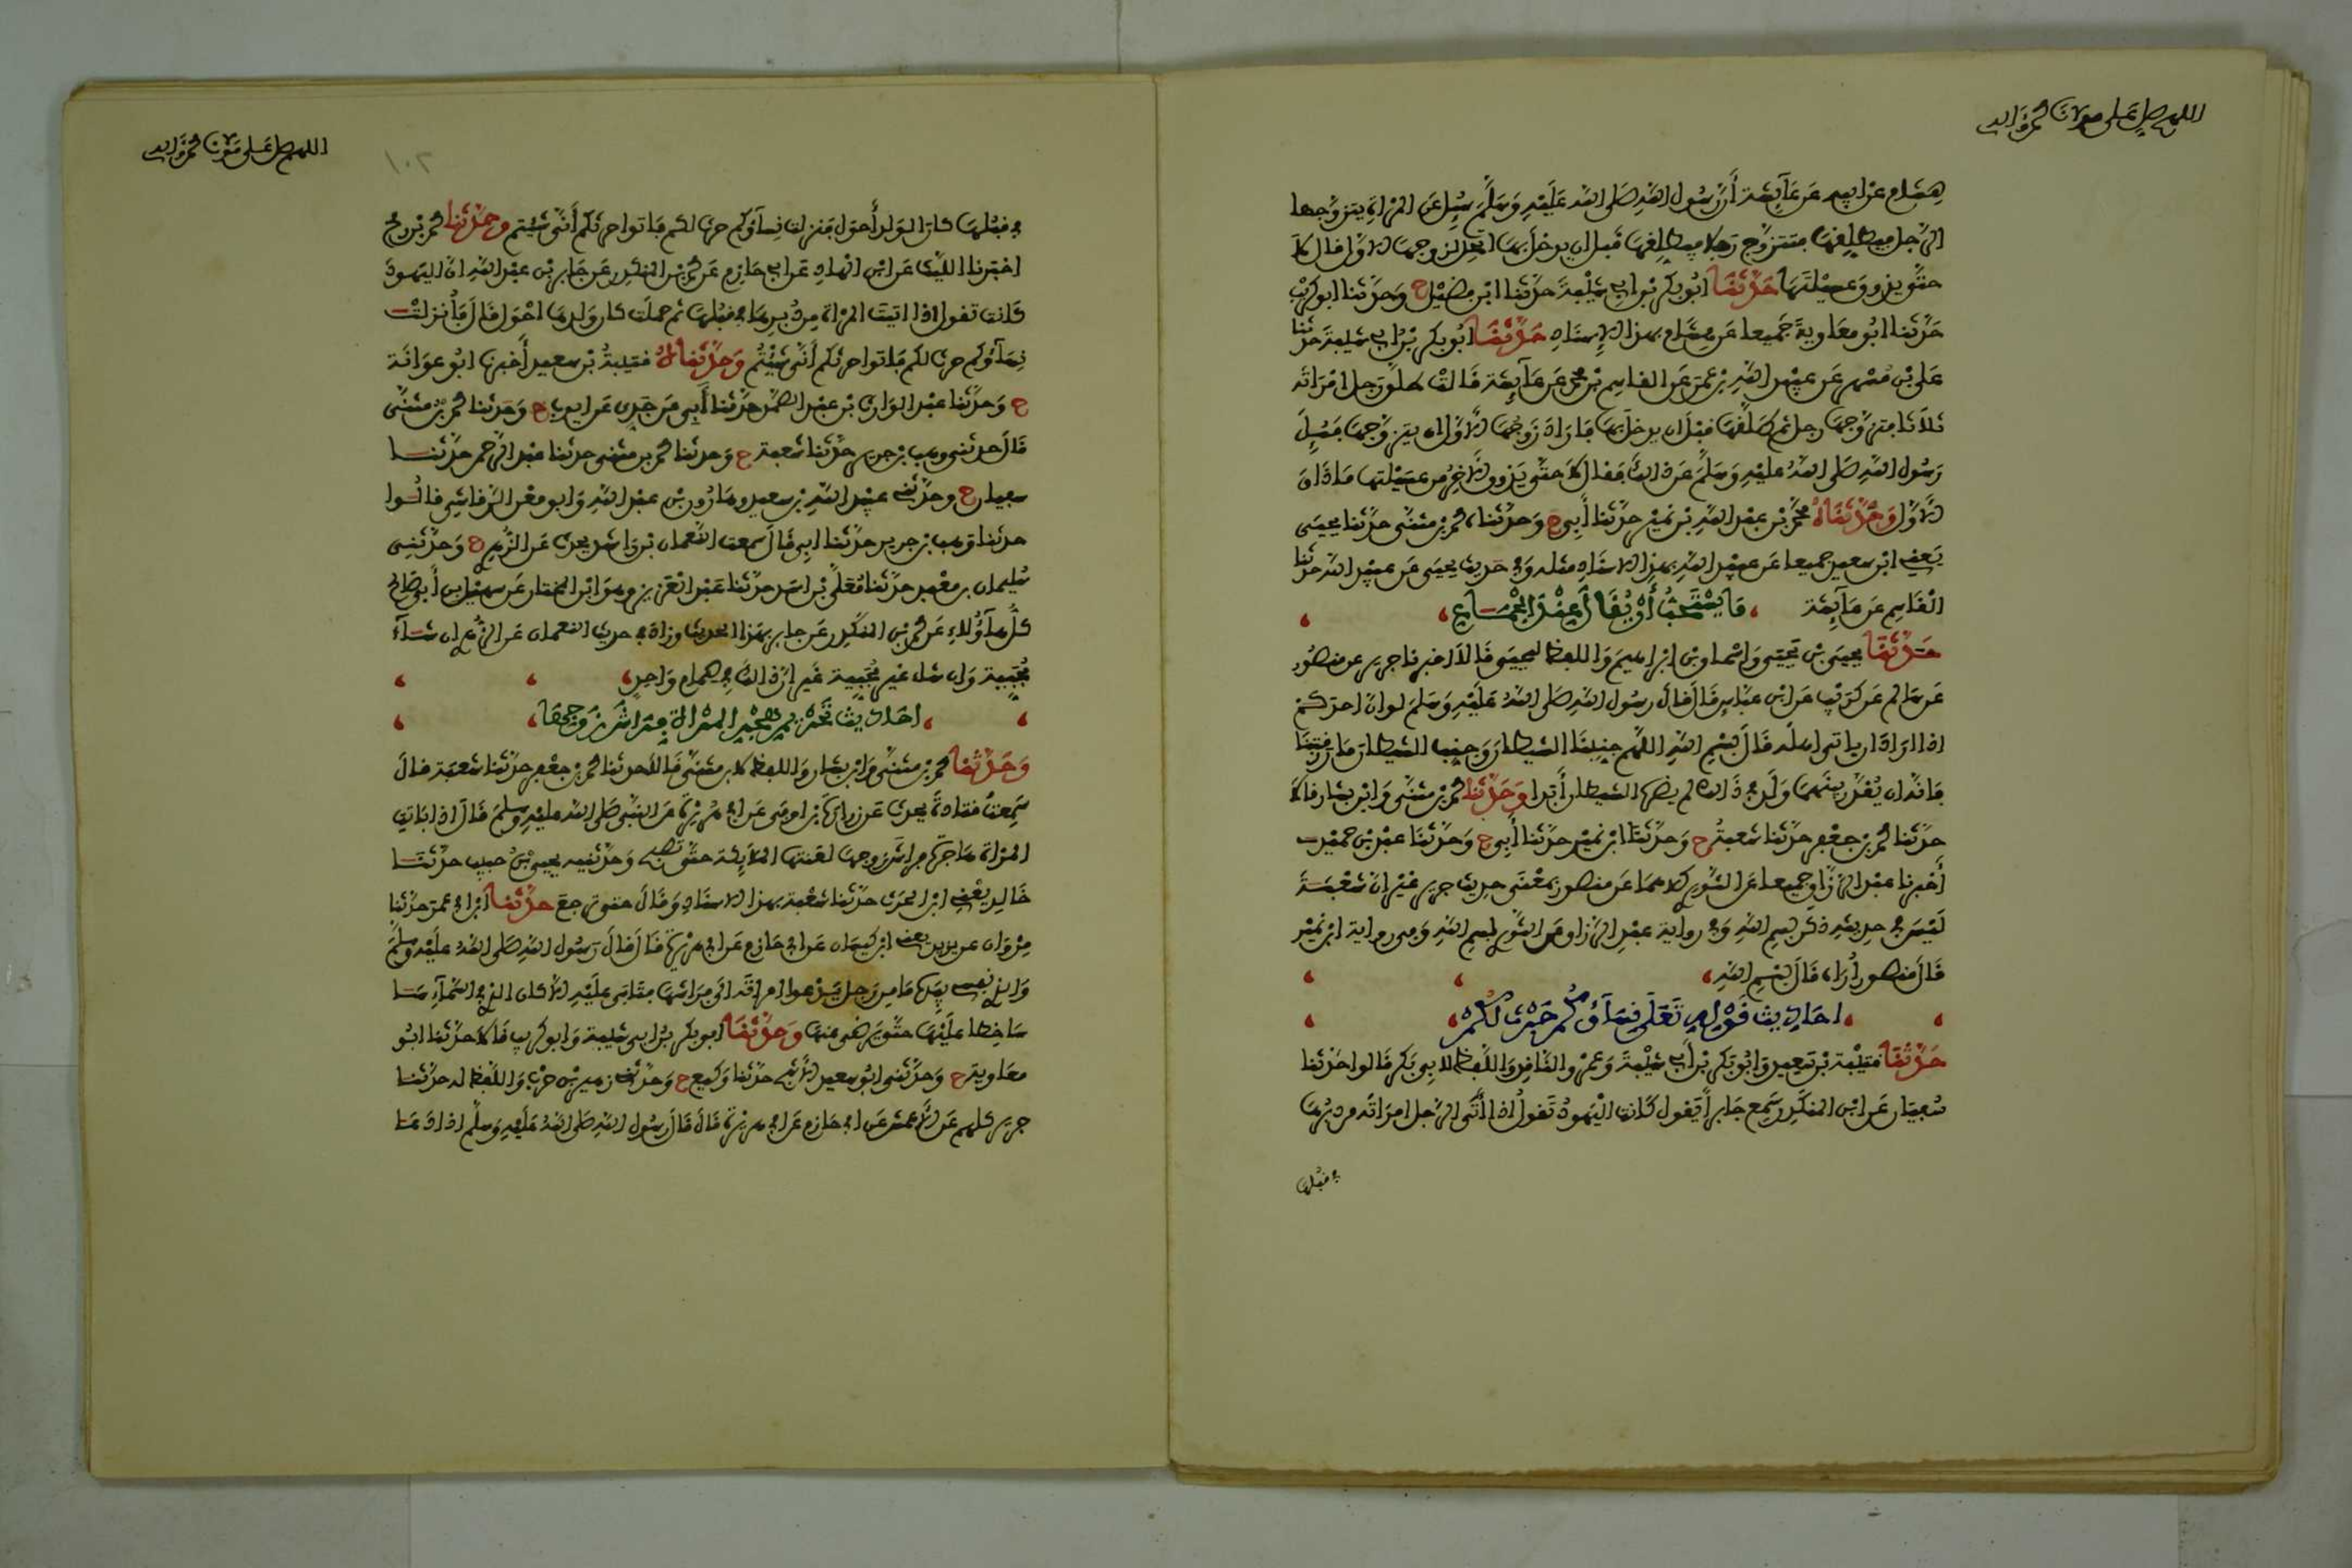 اللهم صل على مولانا محمد وآله
هشام عن ابيه عن عآيشة أن رسول الله صلى الله عليه وسلم سيل عن المرأة يتزوجها
الرجل فيطلقها فتتزوج رجلا فيطلقها قبل ان يدخل بها اتحل لزوجها الاول قال لا
حتى يذوق عسيلتها حدثنا ابو بكر بن ابي شيبة حدثنا ابن فضيل ح وحدثنا ابو كريب
حدثنا ابو معاوية جميعا عن هشام بهذا الإسناد حدثنا ابو بكر بن ابي شيبة حدثنا
علي بن مسهر عن عبيد الله بن عمر عن القاسم بن محمد عن عآيشة قالت طلق رجل امرأته
ثلاثا فتزوجها رجل ثم طلقها قبل ان يدخل بها فاراد زوجها الاول ان يتزوجها فسيل
رسول الله صلى الله عليه وسلم عن ذالك فقال لا حتى يذوق الآخر من عسيلتها ما ذاق
الاول وحدثناه محمد بن عبد الله بن نمير حدثنا أبي ح وحدثناه محمد بن مثنى حدثنا يحيى
يعني ابن سعيد جميعا عن عبيد الله بهذا الاسناد مثله وفي حديث يحيى عن عبيد الله حدثنا
القاسم عن عآيشة ما يستحب أن يقال عند الجماع
حدثنا يحيى بن يحيى واسحاق بن ابراهيم واللفظ ليحيى قالا اخبرنا جرير عن منصور
عن سالم عن كريب عن ابن عباس قال قال رسول الله صلى الله عليه وسلم لو ان احدكم
اذا اراد ان ياتي اهله قال بسم الله اللهم جنبنا الشيطان وجنب الشيطان ما رزقتنا
فانه ان يقدر بينهما ولد في ذالك لم يضره الشيطان أبدا وحدثنا محمد بن مثنى وابن بشار قالا
حدثنا محمد بن جعفر حدثنا شعبة ح وحدثنا ابن نمير حدثنا أبي ح وحدثنا عبد بن حميد
أخبرنا عبد الرزاق جميعا عن الثوري كلاهما عن منصور بمعنى حديث جرير غير ان شعبة
ليس في حديثه ذكر بسم الله وفي رواية عبد الرزاق عن الثوري بسم الله وفي رواية ابن نمير
قال منصور أراه قال بسم الله
احاديث قوله تعلى نسآؤكم حرث لكم
حدثنا قتيبة بن سعيد وابو بكر بن أبي شيبة وعمرو الناقد واللفظ لابي بكر قالوا حدثنا
سفيان عن ابن المنكدر سمع جابرا يقول كانت اليهود تقول اذا أتى الرجل امرأته من دبرها
في قبلها
اللهم صل على مولانا محمد وآله
١٠٢
في قبلها كان الولد أحول فنزلت نسآؤكم حرث لكم فاتوا حرثكم أنى شيتم وحدثنا محمد بن رمح
اخبرنا الليث عن ابن الهاد عن ابي حازم عن محمد بن المنكدر عن جابر بن عبد الله ان اليهود
كانت تقول اذا اتيت المرأة من دبرها في قبلها ثم حملت كان ولدها احول قال فأنزلت
نسآؤكم حرث لكم فاتوا حرثكم أنى شيتم وحدثناه قتيبة بن سعيد أخبرنا ابو عوانة
ح وحدثنا عبد الوارث بن عبد الصمد حدثنا أبي عن جدي عن ايوب ح وحدثنا محمد بن مثنى
قال حدثني وهب بن جرير حدثنا شعبة ح وحدثنا محمد بن مثنى حدثنا عبد الرحمن حدثنا
سفيان ح وحدثني عبيد الله بن سعيد وهارون بن عبد الله وابو معن الرقاشي قالوا
حدثنا وهب بن جرير حدثنا ابي قال سمعت النعمان بن راشد يحدث عن الزهري ح وحدثني
سليمان بن معبد حدثنا معلى بن اسد حدثنا عبد العزيز وهو ابن المختار عن سهيل بن أبي صالح
كل هآؤلاء عن محمد بن المنكدر عن جابر بهذا الحديث وزاد في حديث النعمان عن الزهري ان شآء
مجبية وان شآء غير مجبية غير ان ذالك في صمام واحد
احاديث تحريم هجر المرأة فراش زوجها
وحدثنا محمد بن مثنى وابن بشار واللفظ لابن مثنى قالا حدثنا محمد بن جعفر حدثنا شعبة قال
سمعت قتادة يحدث عن زرارة بن اوفى عن ابي هريرة عن النبي صلى الله عليه وسلم قال اذا باتت
المرأة هاجرة فراش زوجها لعنتها الملايكة حتى تصبح وحدثنيه يحيى بن حبيب حدثنا
خالد يعني ابن الحرث حدثنا شعبة بهذا الاسناد وقال حتى ترجع حدثنا ابن ابي عمر حدثنا
مروان عن يزيد يعني ابن كيسان عن ابي حازم عن ابي هريرة قال قال رسول الله صلى الله عليه وسلم
والذي نفسي بيده ما من رجل يدعوا امرأته الى فراشها فتابى عليه الا كان الذي في السمآء
ساخطا عليها حتى يرضى عنها وحدثنا ابو بكر بن ابي شيبة وابو كريب قالا حدثنا ابو
معاوية ح وحدثني ابو سعيد الاشج حدثنا وكيع ح وحدثني زهير بن حرب واللفظ له حدثنا
جرير كلهم عن الاعمش عن ابي حازم عن ابي هريرة قال قال رسول الله صلى الله عليه وسلم اذا دعا